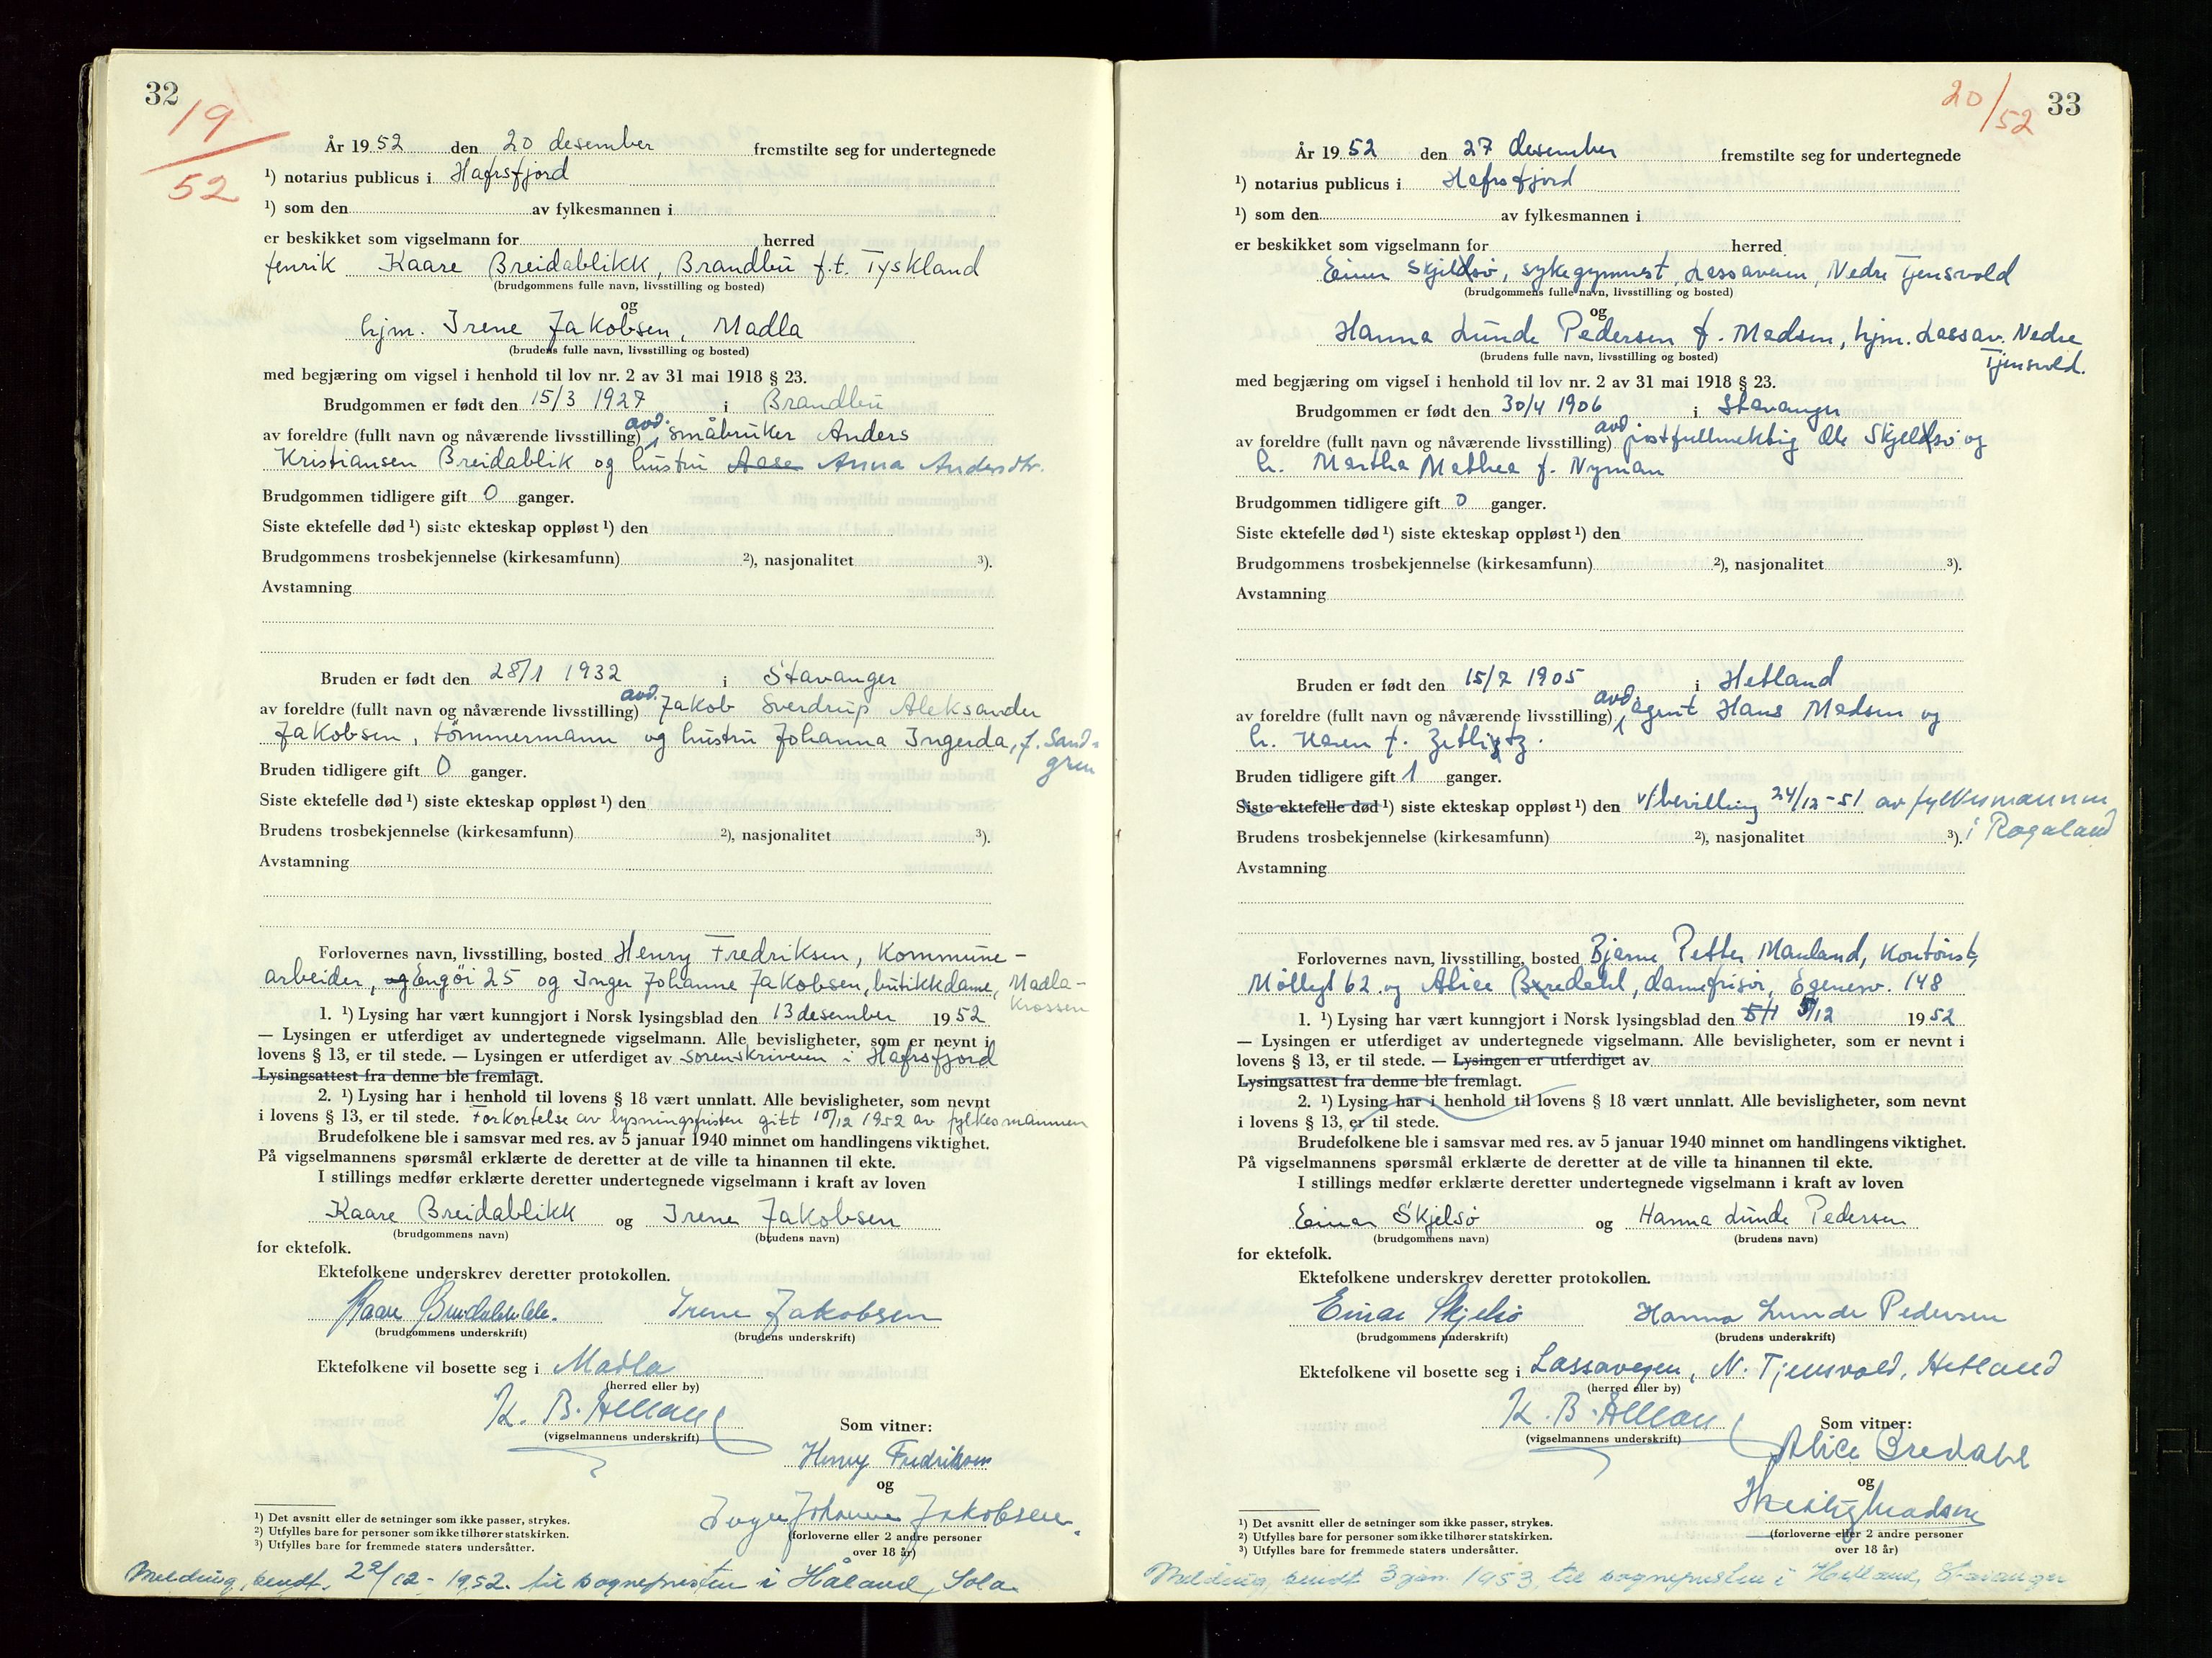 32
19/52
År 1952 den 20 desember fremstilte seg for undertegnede
¹) notarius publicus i Hafrsfjord
¹) som den av fylkesmannen i
er beskikket som vigselmann for herred
fenrik Kaare Breidablikk, Brandbu f.t. Tyskland
(brudgommens fulle navn, livsstilling og bosted)
og
hjm. Irene Jakobsen, Madla
(brudens fulle navn, livsstilling og bosted)
med begjæring om vigsel i henhold til lov nr. 2 av 31 mai 1918 § 23.
Brudgommen er født den 15/3 1927 i Brandbu
av foreldre (fullt navn og nåværende livsstilling) avd. småbruker Anders
Kristiansen Breidablik og hustru Aase Anna Andersdtr.
Brudgommen tidligere gift 0 ganger.
Siste ektefelle død ¹) siste ekteskap oppløst ¹) den
Brudgommens trosbekjennelse (kirkesamfunn) ²), nasjonalitet ³).
Avstamning
Bruden er født den 28/1 1932 i Stavanger
av foreldre (fullt navn og nåværende livsstilling) avd. Jakob Sverdrup Aleksander
Jakobsen, tömmermann og hustru Johanna Ingerda, f. Sand-
gren
Bruden tidligere gift 0 ganger.
Siste ektefelle død ¹) siste ekteskap oppløst ¹) den
Brudens trosbekjennelse (kirkesamfunn) ²), nasjonalitet ³).
Avstamning
Forlovernes navn, livsstilling, bosted Henry Fredriksen, Kommune-
arbeider, og Engöi 25 og Inger Johanne Jakobsen, butikkdame, Madla-
Krossen
1. ¹) Lysing har vært kunngjort i Norsk lysingsblad den 13 desember 1952
— Lysingen er utferdiget av undertegnede vigselmann. Alle bevisligheter, som er nevnt i
lovens § 13, er til stede. — Lysingen er utferdiget av sorenskriveren i Hafrsfjord
Lysingsattest fra denne ble fremlagt.
2. ¹) Lysing har i henhold til lovens § 18 vært unnlatt. Alle bevisligheter, som nevnt
i lovens § 13, er til stede. Forkortelse av lysningsfristen gitt 10/12 1952 av fylkesmannen
Brudefolkene ble i samsvar med res. av 5 januar 1940 minnet om handlingens viktighet.
På vigselmannens spørsmål erklærte de deretter at de ville ta hinannen til ekte.
I stillings medfør erklærte deretter undertegnede vigselmann i kraft av loven
Kaare Breidablikk og Irene Jakobsen
(brudgommens navn) (brudens navn)
for ektefolk.
Ektefolkene underskrev deretter protokollen.
Kaare Breidablikk. Irene Jakobsen
(brudgommens underskrift) (brudens underskrift)
Ektefolkene vil bosette seg i Madla
(herred eller by)
K. B.
(vigselmannens underskrift)
Som vitner:
Henry Fredriksen
og
Inger Johanne Jakobsen.
(forloverne eller 2 andre personer
over 18 år)
¹) Det avsnitt eller de setninger som ikke passer, strykes.
²) Utfylles bare for personer som ikke tilhører statskirken.
³) Utfylles bare for fremmede staters undersåtter.
Melding sendt 22/12-1952 til sogneprsten i Håland, Sola

33
20/52
År 1952 den 27 desember fremstilte seg for undertegnede
¹) notarius publicus i Hafrsfjord
¹) som den av fylkesmannen i
er beskikket som vigselmann for herred
Einar Skjeldsö, sykegymnast, Lassaveien, Nedre Tjensvold
(brudgommens fulle navn, livsstilling og bosted)
og
Hanna Lunde Pedersen f. Madsen, hjm. Lassav. Nedre
Tjensvold.
(brudens fulle navn, livsstilling og bosted)
med begjæring om vigsel i henhold til lov nr. 2 av 31 mai 1918 § 23.
Brudgommen er født den 30/4 1906 i Stavanger
av foreldre (fullt navn og nåværende livsstilling) avd. postfullmektig Ole Skjeldsö og
h. Martha Mathea f. Nyman
Brudgommen tidligere gift 0 ganger.
Siste ektefelle død ¹) siste ekteskap oppløst ¹) den
Brudgommens trosbekjennelse (kirkesamfunn) ²), nasjonalitet ³).
Avstamning
Bruden er født den 15/7 1905 i Hetland
av foreldre (fullt navn og nåværende livsstilling) avd. agent Hans Madsen og
h. Karen f. Zetlitz.
Bruden tidligere gift 1 ganger.
Siste ektefelle død ¹) siste ekteskap oppløst ¹) den v/bevilling 24/12-51 av fylkesmannen
i Rogaland
Brudens trosbekjennelse (kirkesamfunn) ²), nasjonalitet ³).
Avstamning
Forlovernes navn, livsstilling, bosted Bjarne Petter Mauland, kontorist,
Möllegt 62. og Alice Bredahl, damefrisör, Egenesv. 148
1. ¹) Lysing har vært kunngjort i Norsk lysingsblad den 5/1 5/12 1952
— Lysingen er utferdiget av undertegnede vigselmann. Alle bevisligheter, som er nevnt i
lovens § 13, er til stede. — Lysingen er utferdiget av
Lysingsattest fra denne ble fremlagt.
2. ¹) Lysing har i henhold til lovens § 18 vært unnlatt. Alle bevisligheter, som nevnt
i lovens § 13, er til stede.
Brudefolkene ble i samsvar med res. av 5 januar 1940 minnet om handlingens viktighet.
På vigselmannens spørsmål erklærte de deretter at de ville ta hinannen til ekte.
I stillings medfør erklærte deretter undertegnede vigselmann i kraft av loven
Einar Skjelsö og Hanna Lunde Pedersen
(brudgommens navn) (brudens navn)
for ektefolk.
Ektefolkene underskrev deretter protokollen.
Einar Skjelsö Hanna Lunde Pedersen
(brudgommens underskrift) (brudens underskrift)
Ektefolkene vil bosette seg i Lassavegen, N. Tjensvold, Hetland
(herred eller by)
K. B.
(vigselmannens underskrift)
Som vitner:
Alice Bredahl
og
Madsen
(forloverne eller 2 andre personer
over 18 år)
¹) Det avsnitt eller de setninger som ikke passer, strykes.
²) Utfylles bare for personer som ikke tilhører statskirken.
³) Utfylles bare for fremmede staters undersåtter.
Melding sendt 3 jan. 1953 til sognepresten i Hetland, Stavanger